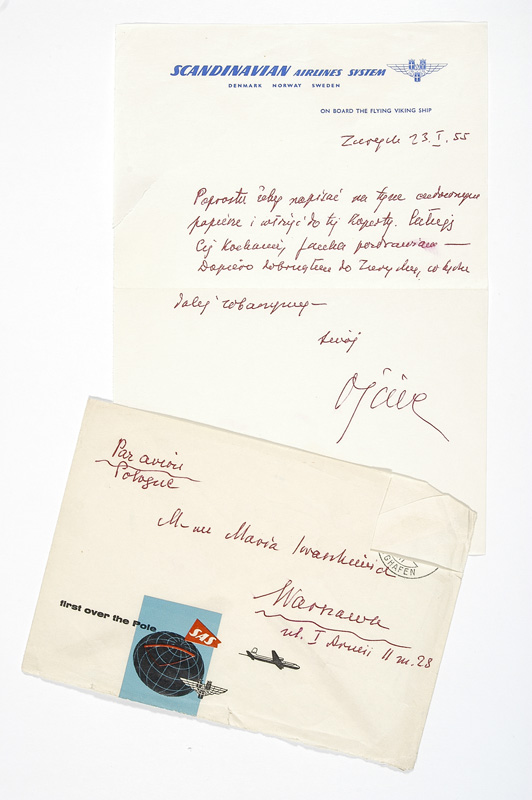 SCANDINAVIAN AIRLINES SYSTEM
DENMARK NORWAY SWEDEN
ON BOARD THE FLYING VIKING SHIP
Zurych 23.I.55
Poprostu żeby napisać na tym cudownym
papierze i włożyć do tej koperty. Całuję
Cię Kochanie, Jacka pozdrawiam —
Dopiero dobrnąłem do Zurychu, co będzie
dalej zobaczymy —
twój
Ojciec
Par avion
Pologne
M-me Maria Iwaszkiewicz
Warszawa
ul. I Armii 11 m. 28
GRAFEN
first over the Pole
SAS